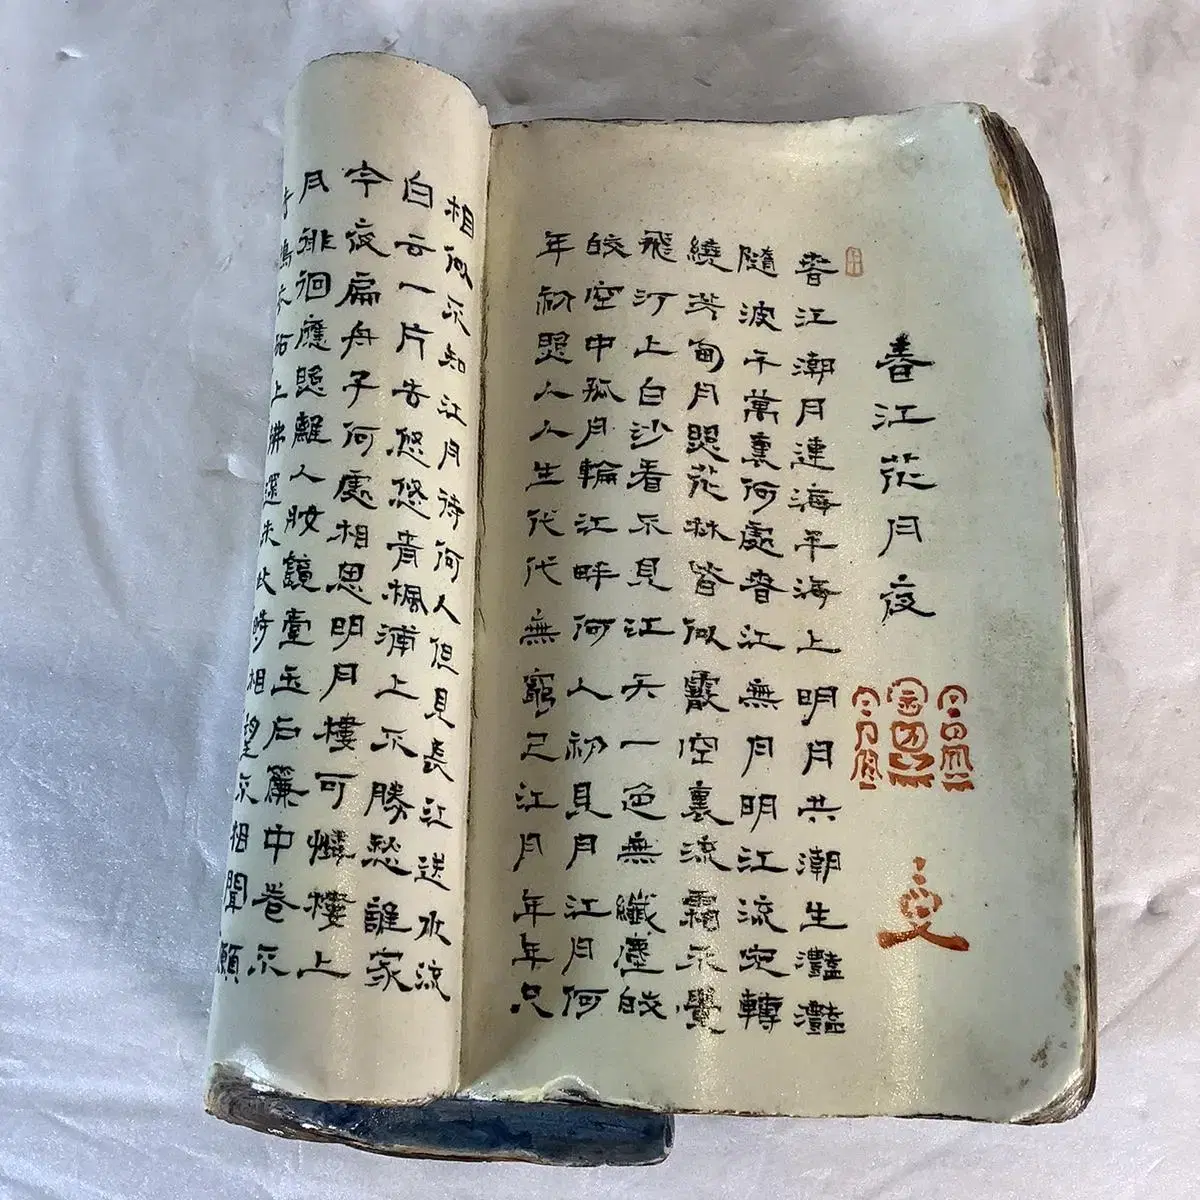 春江花月夜
春江潮月連海平海上明月共潮生灩灩
隨波千萬裏何處春江無月明江流宛轉
繞芳甸月照花林皆似霰空裏流霜不覺
飛汀上白沙看不見江天一色無纖塵皎
皎空中孤月輪江畔何人初見月江月何
年初照人人生代代無窮已江月年年只
相似不知江月待何人但見長江送水流
白云一片去悠悠青楓浦上不勝愁誰家
今夜扁舟子何處相思明月樓可憐樓上
月徘徊應照離人妝鏡臺玉戶簾中卷不
搗衣砧上拂還來此時相望不相聞願